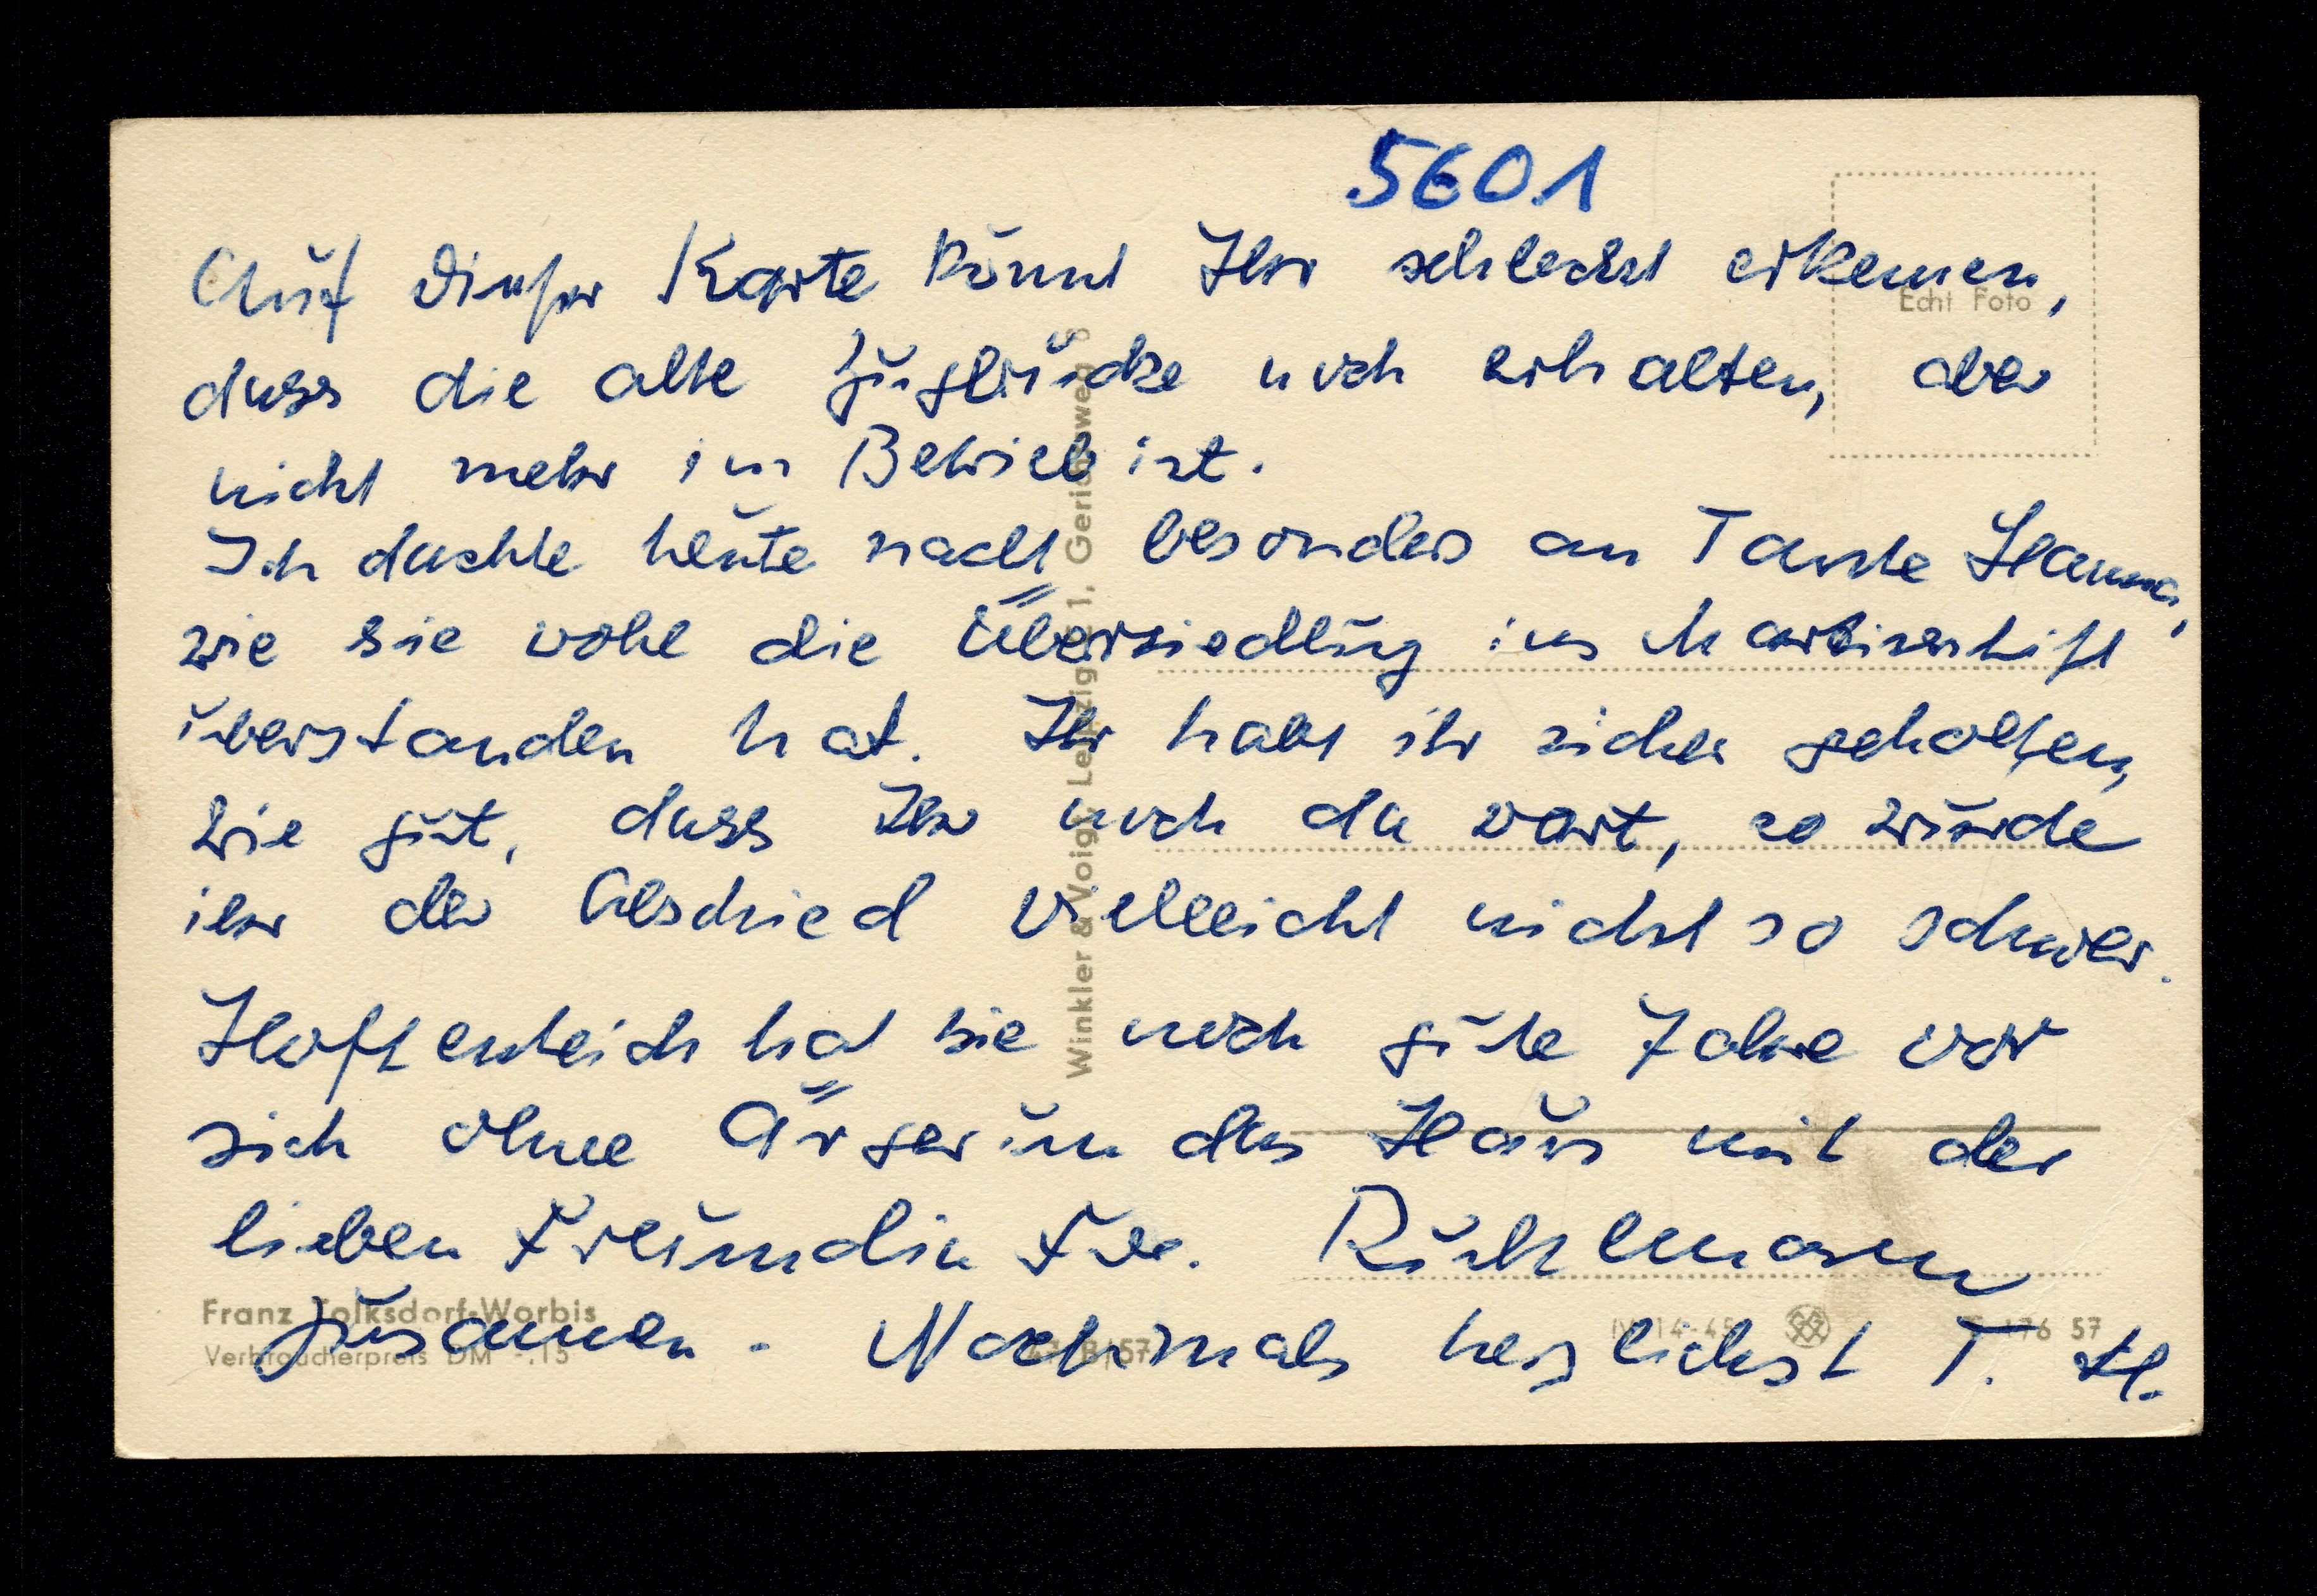 5601
Auf dieser Karte könnt Ihr schlecht erkennen,
dass die alte Zugbrücke noch erhalten, aber
nicht mehr im Betrieb ist.
Ich dachte heute nacht besonders an Tante Hanna,
wie sie wohl die Übersiedlung ins Martinstift
überstanden hat. Ihr habt ihr sicher geholfen,
wie gut, dass Ihr noch da wart, so wurde
ihr der Abschied vielleicht nicht so schwer.
Hoffentlich hat sie noch gute Jahre vor
sich ohne Ärger um das Haus mit der
lieben Freundin Frl. Rühlmann
zusamen. Nochmals herzlichst T. H.
Echt Foto
Winkler & Voigt, Leipzig C 1, Gerichtsweg
Franz Tolksdorf-Worbis
Verbraucherpreis DM -.15
IV-14-45
176 57